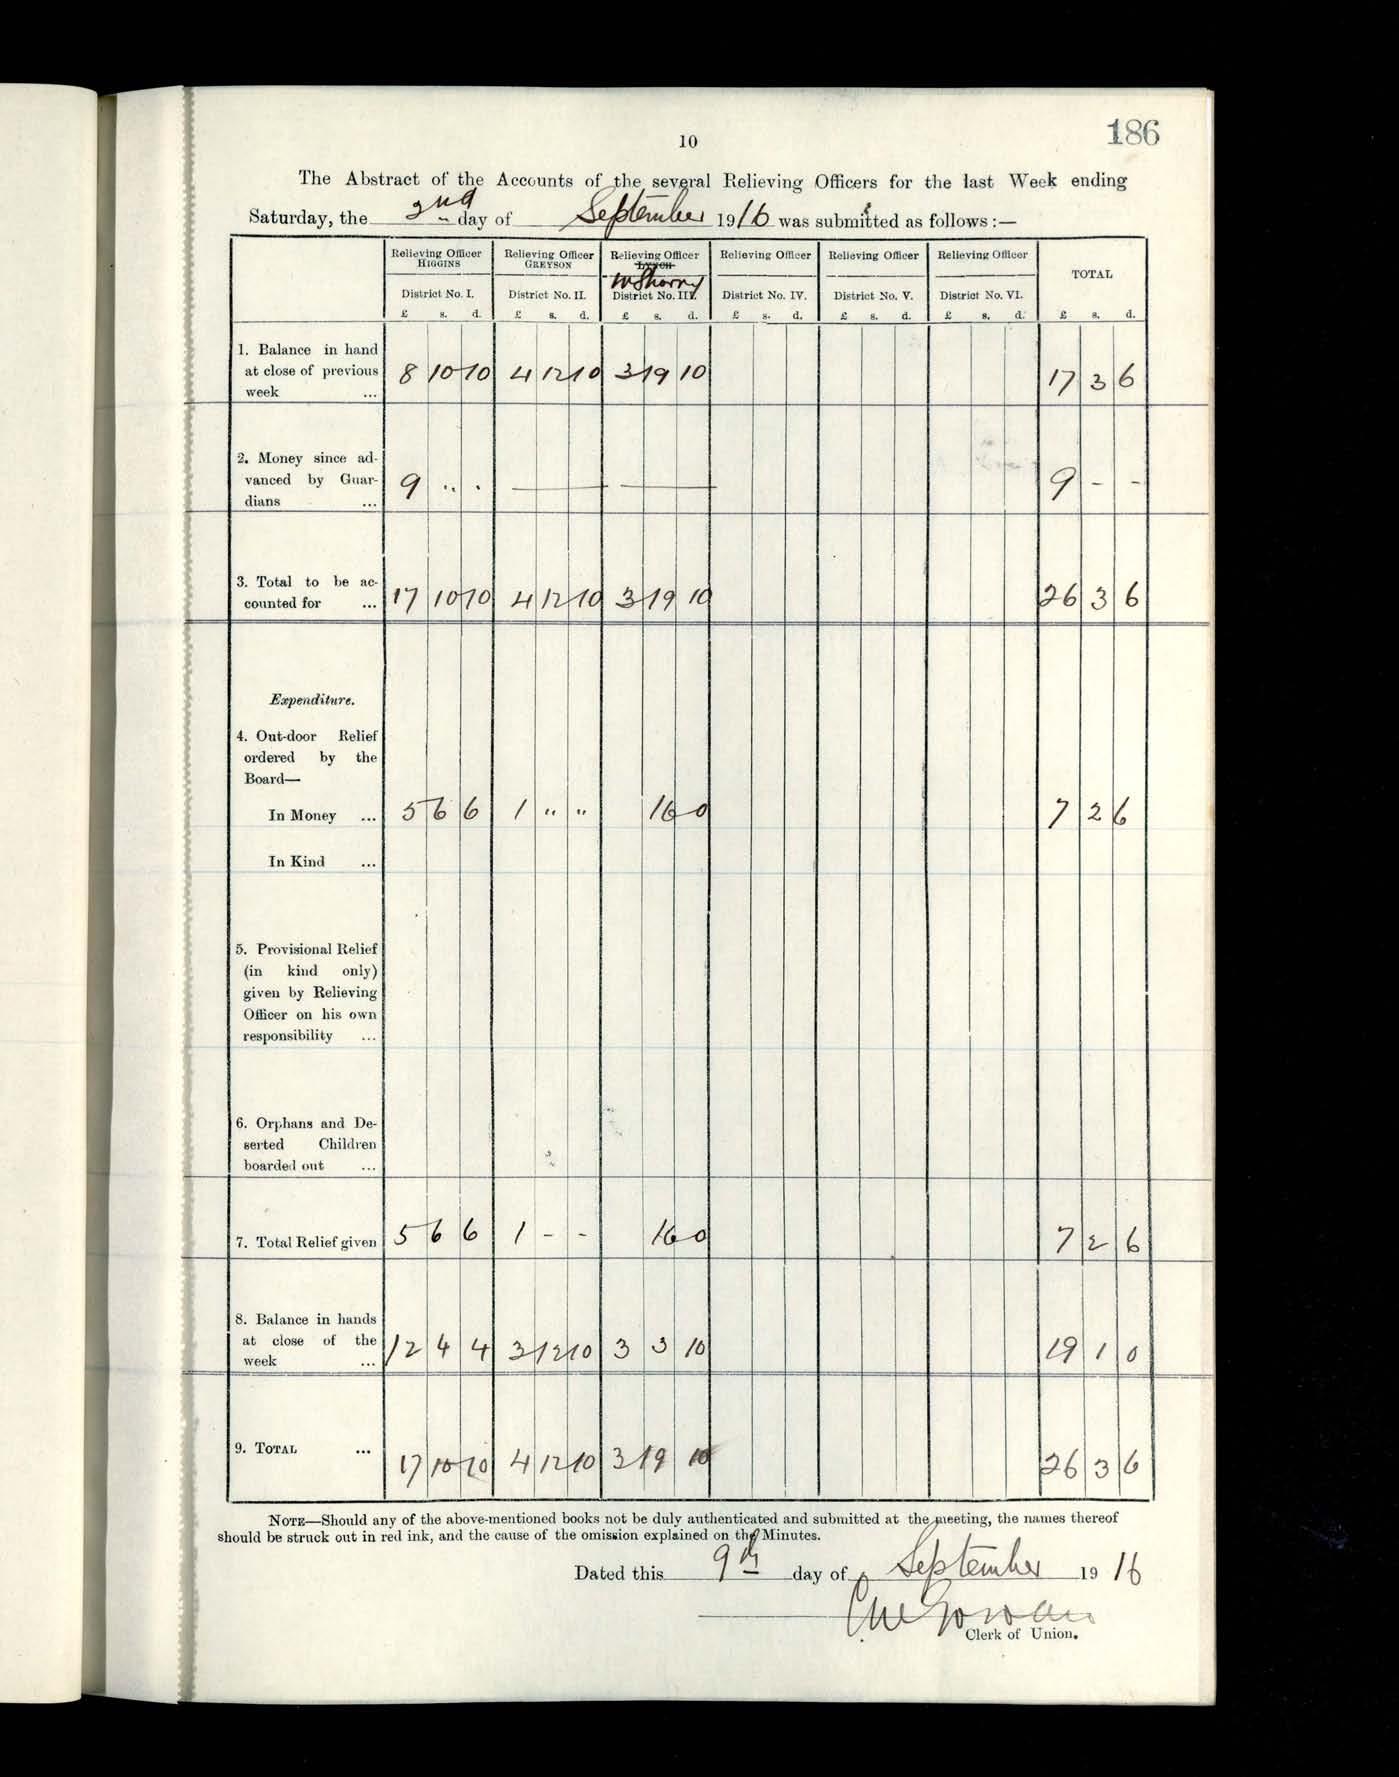 186
10
The Abstract of the Accounts of the several Relieving Officers for the last Week ending
Saturday, the 2nd day of September 1916 was submitted as follows :—
Relieving Officer HIGGINS Relieving Officer GREYSON Relieving Officer LYNCH Relieving Officer Relieving Officer Relieving Officer TOTAL
District No. I. District No. II. District No. III. District No. IV. District No. V. District No. VI.
£ s. d. £ s. d. £ s. d. £ s. d. £ s. d. £ s. d. £ s. d.
1. Balance in hand
at close of previous
week ... 8 10 10 4 12 10 3 19 10 17 3 6
2. Money since ad-
vanced by Guar-
dians ... 9 " " — — 9 - -
3. Total to be ac-
counted for ... 17 10 10 4 12 10 3 19 10 26 3 6
Expenditure.
4. Out-door Relief
ordered by the
Board—
In Money ... 5 6 6 1 " " 16 0 7 2 6
In Kind ...
5. Provisional Relief
(in kind only)
given by Relieving
Officer on his own
responsibility ...
6. Orphans and De-
serted Children
boarded out ...
7. Total Relief given 5 6 6 1 - - 16 0 7 2 6
8. Balance in hands
at close of the
week ... 12 4 4 3 12 10 3 3 10 19 1 0
9. TOTAL ... 17 10 10 4 12 10 3 19 10 26 3 6
NOTE—Should any of the above-mentioned books not be duly authenticated and submitted at the meeting, the names thereof
should be struck out in red ink, and the cause of the omission explained on the Minutes.
Dated this 9th day of September 1916
Clerk of Union.